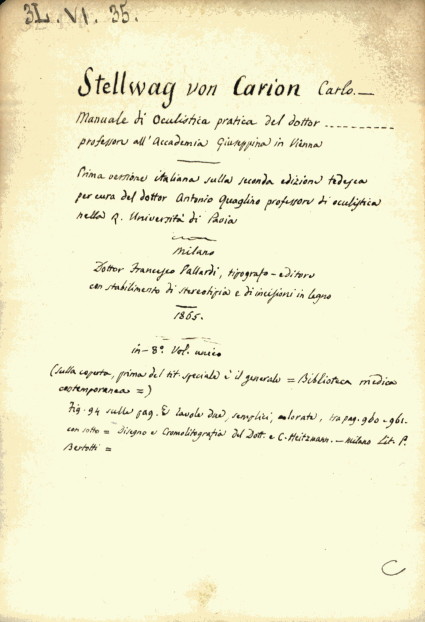 3L. VI. 35.
Stellwag von Carion Carlo. —
Manuale di Oculistica pratica del dottor ----------
professore all'Accademia Giuseppina in Vienna
Prima versione italiana sulla seconda edizione tedesca
per cura del dottor Antonio Quaglino professore di oculistica
nella R. Università di Pavia
Milano
Dottor Francesco Vallardi, tipografo-editore
con stabilimento di stereotipia e di incisioni in legno
1865.
in-8° Vol. unico
(sulla coperta, prima del tit. speciale è il generale = Biblioteca medica
contemporanea =)
Fig. 94 sulle pag. E tavole due, semplici, colorate, tra pag. 960-961.
con sotto = Disegno e Cromolitografia del Dott. C. Heitzmann. - Milano Lit. P.
Bertotti =
C